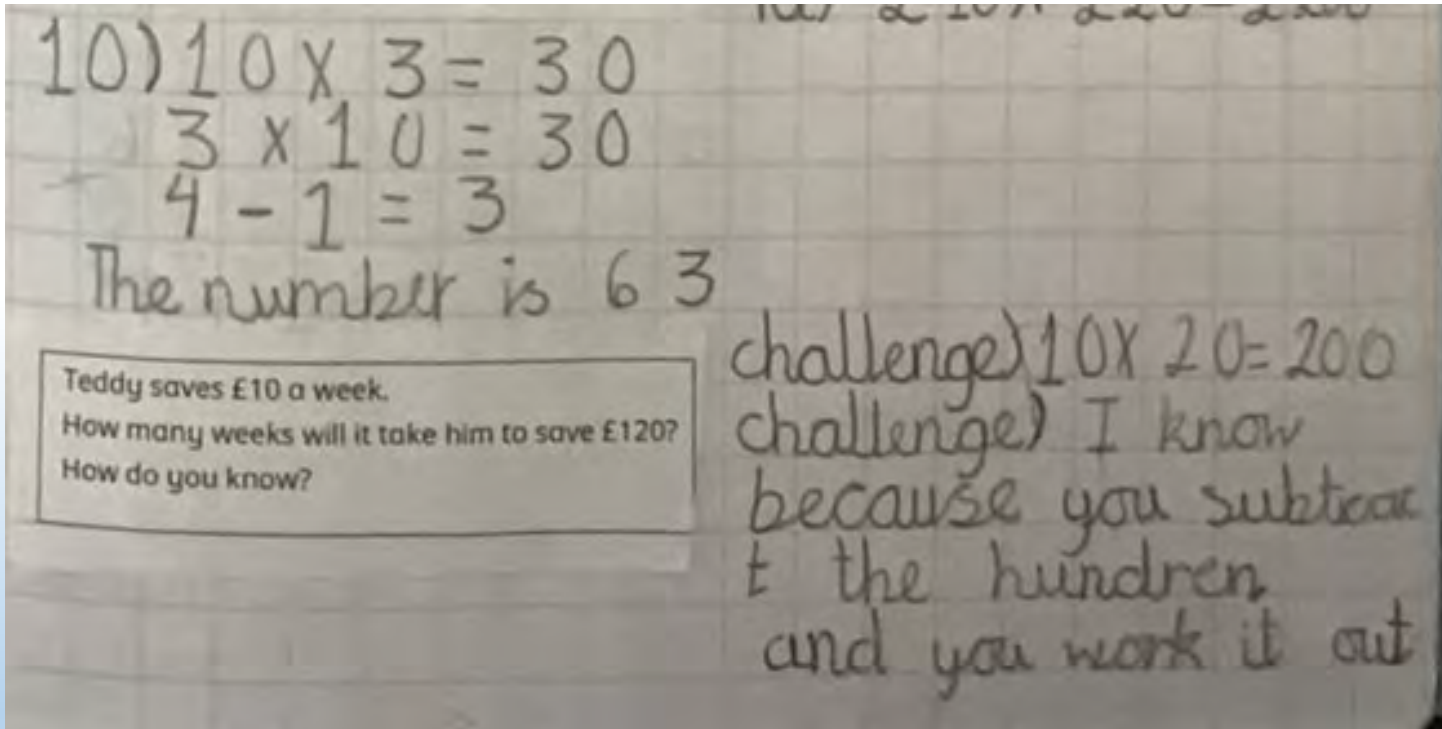 10) 10 X 3 = 30
3 x 10 = 30
4 - 1 = 3
The number is 63
Teddy saves £10 a week.
How many weeks will it take him to save £120?
How do you know?
challenge) 10 X 20 = 200
challenge) I know
because you subtrac
t the hundren
and you work it out